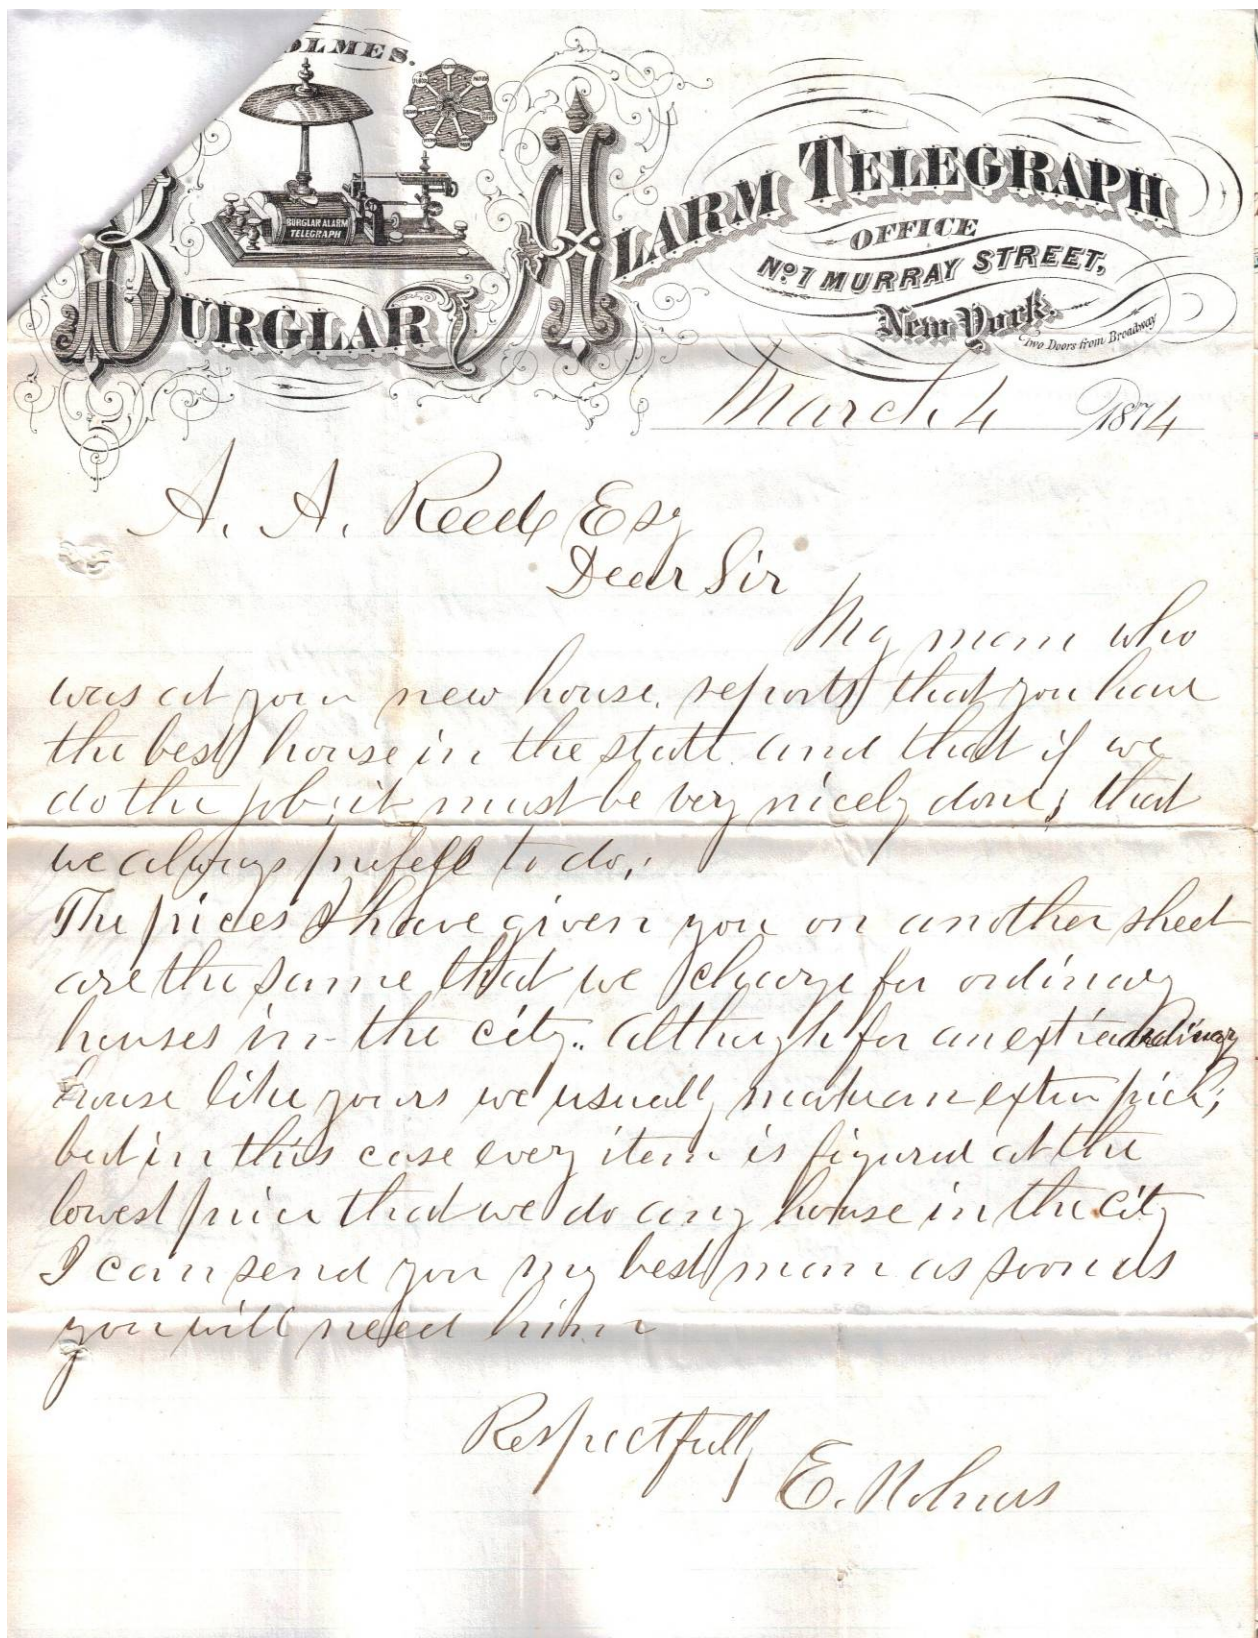 OLMES.
BURGLAR ALARM
TELEGRAPH
BURGLAR ALARM TELEGRAPH
OFFICE
No. 7 MURRAY STREET,
New York.
Two Doors from Broadway
March 4 1874
A. A. Reed Esq
Dear Sir
My man who
was at your new house, reports that you have
the best house in the state and that if we
do the job, it must be very nicely done; that
we always prefer to do.
The prices I have given you on another sheet
are the same that we charge for ordinary
houses in the city. although for an extraordinary
house like yours we usually make an extra price;
but in this case every item is figured at the
lowest price that we do any house in the city
I can send you my best man as soon as
you will need him
Respectfully
E. Holmes